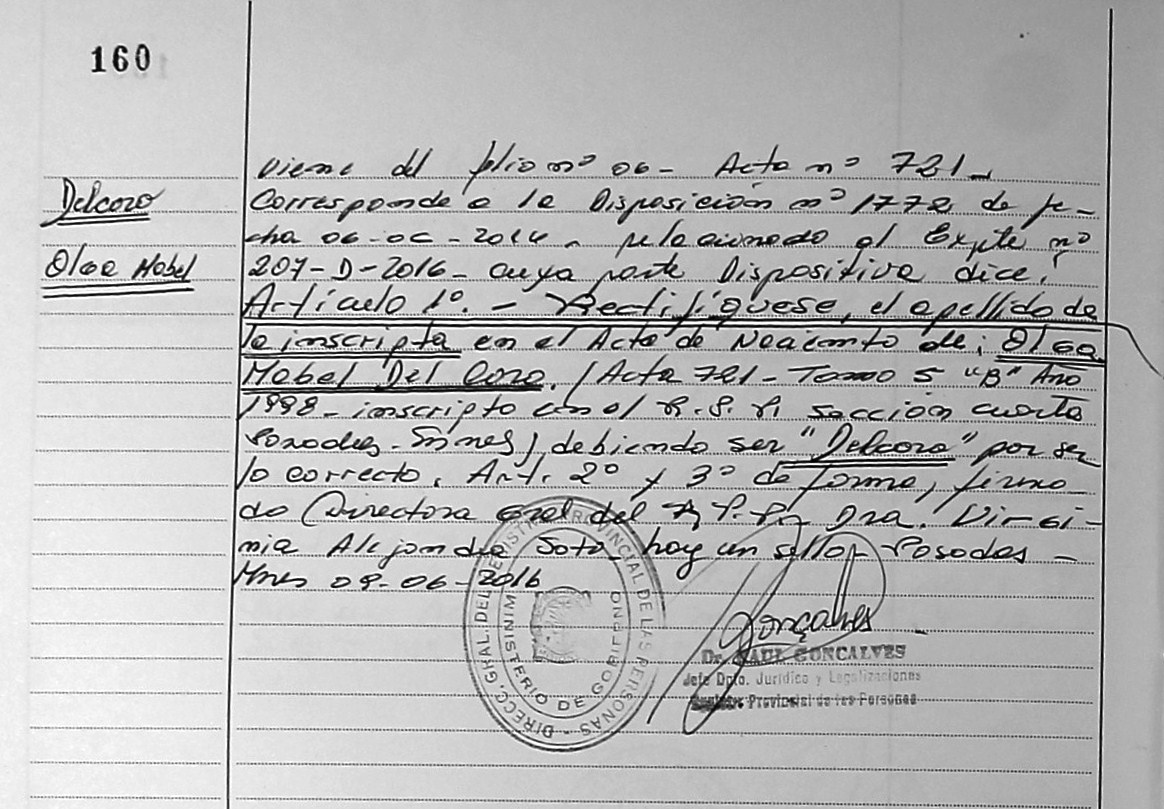 160
Delcoro
Olga Mabel
Viene del folio nº 06 - Acta nº 721 -
Corresponde a la Disposición nº 1772 de fe-
cha 06-06-2016 - relacionado al Expte nº
207-D-2016 - cuya parte Dispositiva dice:
Artículo 1º. - Rectifíquese, el apellido de
la inscripta en el Acta de Nacimto de: Olga
Mabel Del Coro. (Acta 721 - Tomo 5 "B" Año
1998 - inscripto en el R.P.P. sección cuarta
Posadas - Mnes), debiendo ser "Delcoro" por ser
lo correcto. Art. 2º y 3º de forma, firma-
do Directora Gral del R.P.P. Dra. Virgi-
nia Alejandra Soto, hay un sello. Posadas -
Mnes 09-06-2016
DIRECC. GRAL. DEL REGISTRO PROVINCIAL DE LAS PERSONAS -
MINISTERIO DE GOBIERNO
Gonçalves
Dr. RAUL GONCALVES
Jefe Dpto. Jurídico y Legalizaciones
Registro Provincial de las Personas